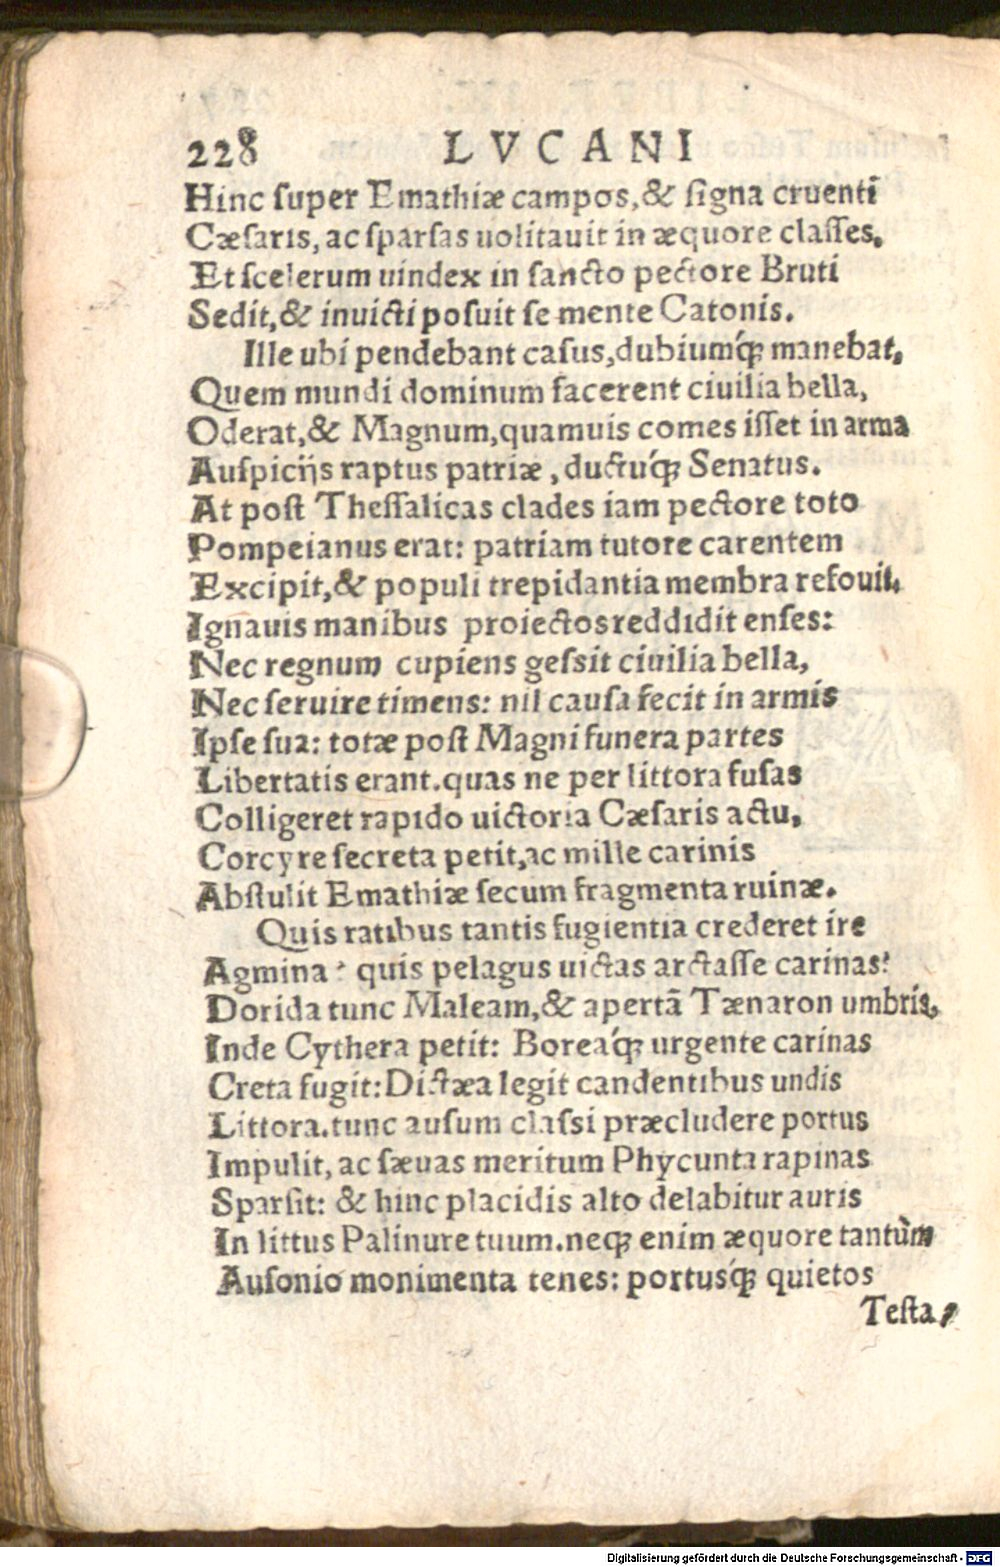 228 LVCANI
Hinc ſuper Emathiæ campos,& ſigna cruenti
Cæſaris, ac ſparſas uolitauit in æquore claſſes,
Et ſcelerum uindex in ſancto pectore Bruti
Sedit,& inuicti poſuit ſe mente Catonis.
Ille ubi pendebant caſus,dubiumq́ꝫ manebat,
Quem mundi dominum facerent ciuilia bella,
Oderat,& Magnum,quamuis comes iſſet in arma
Auſpicijs raptus patriæ, ductuq́ꝫ Senatus.
At poſt Theſſalicas clades iam pectore toto
Pompeianus erat: patriam tutore carentem
Excipit,& populi trepidantia membra refouit,
Ignauis manibus proiectos reddidit enſes:
Nec regnum cupiens geſsit ciuilia bella,
Nec ſeruire timens: nil cauſa fecit in armis
Ipſe ſua: totæ poſt Magni funera partes
Libertatis erant.quas ne per littora fuſas
Colligeret rapido uictoria Cæſaris actu,
Corcyre ſecreta petit,ac mille carinis
Abſtulit Emathiæ ſecum fragmenta ruinæ.
Quis ratibus tantis fugientia crederet ire
Agmina? quis pelagus uictas arctaſſe carinas?
Dorida tunc Maleam,& apertã Tænaron umbris,
Inde Cythera petit: Boreaq́ꝫ urgente carinas
Creta fugit:Dictæa legit candentibus undis
Littora.tunc auſum claſsi præcludere portus
Impulit, ac ſæuas meritum Phycunta rapinas
Sparſit: & hinc placidis alto delabitur auris
In littus Palinure tuum.neqꝫ enim æquore tantùm
Auſonio monimenta tenes: portusq́ꝫ quietos
Teſta,
Digitalisierung gefördert durch die Deutsche Forschungsgemeinschaft - DFG